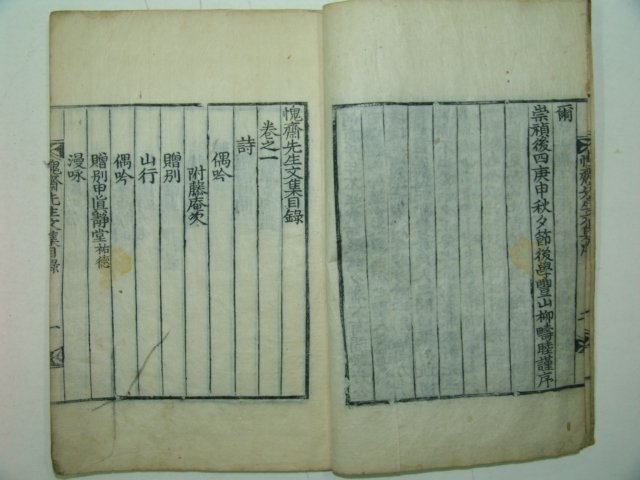 爾
崇禎後四庚申秋夕節後學豐山柳疇睦謹序
愧齋先生文集目錄
卷之一
詩
偶吟
附藤庵次
贈別
山行
偶吟
贈別申眞靜堂祐德
漫咏
愧齋先生文集目錄 一